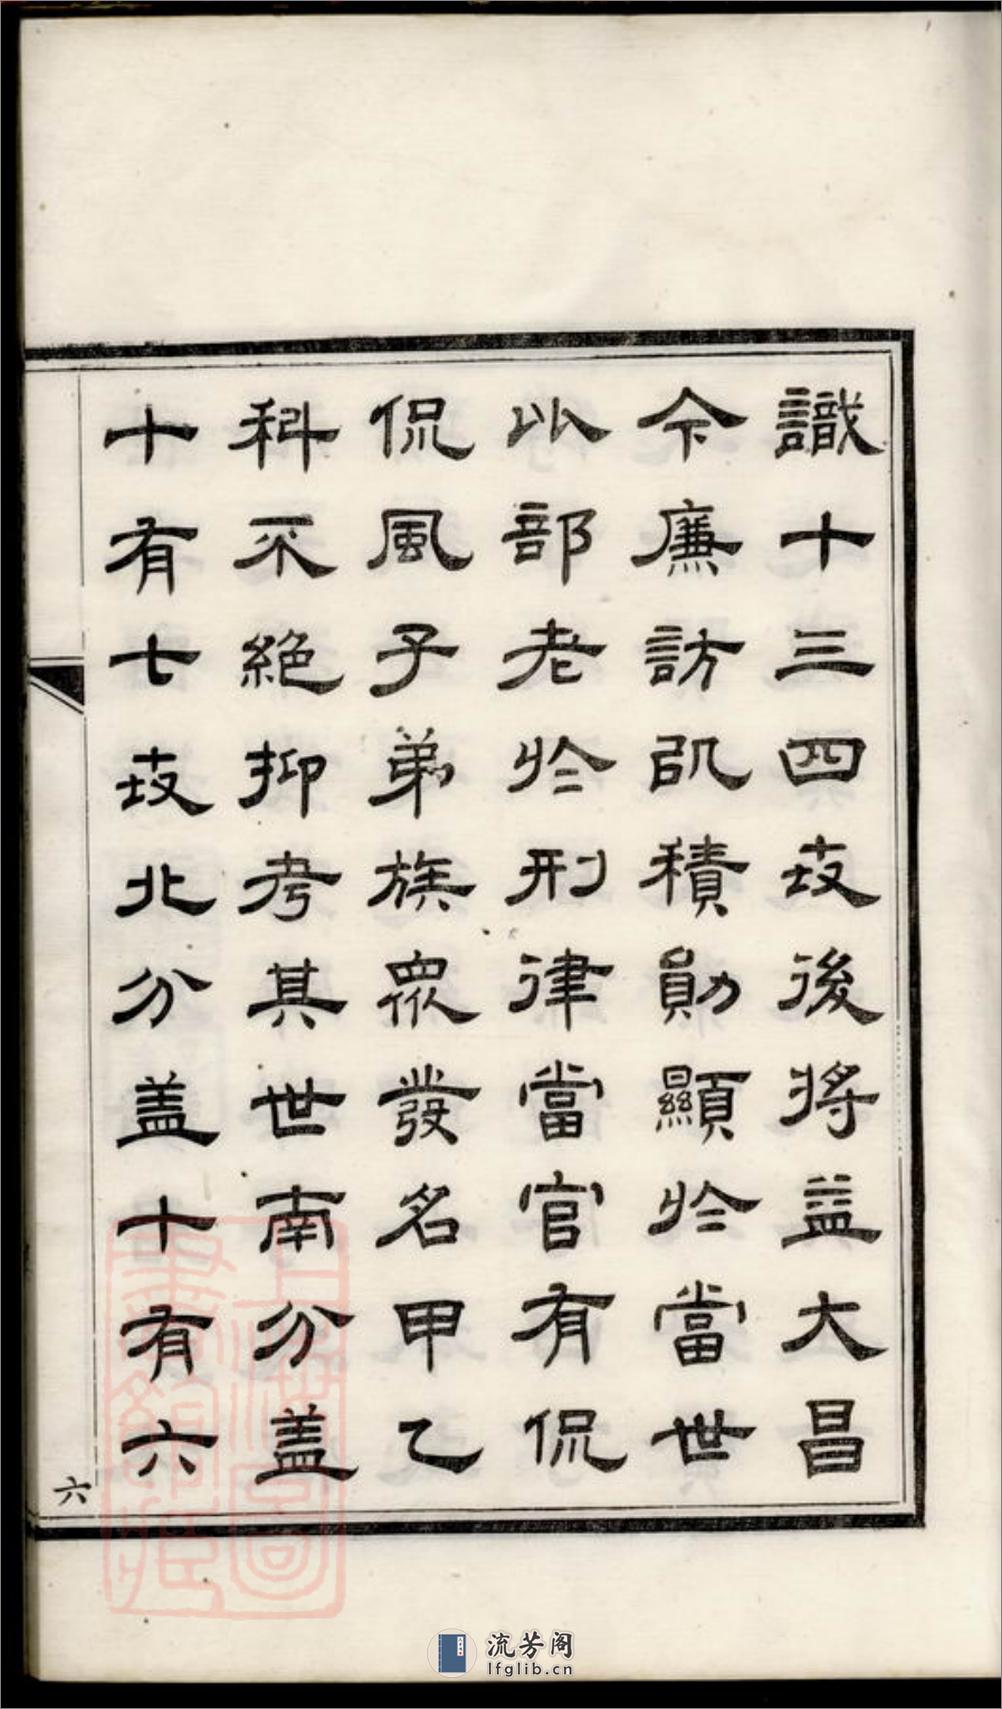 識十三四後將益大昌
今廉訪積勛顯於當世
以部老於刑律當官有侃
侃風子弟族眾發名甲乙
科不絕抑考其世南分盖
十有七北分盖十有六
六
上海圖
書館藏
流芳阁
lfglib.cn